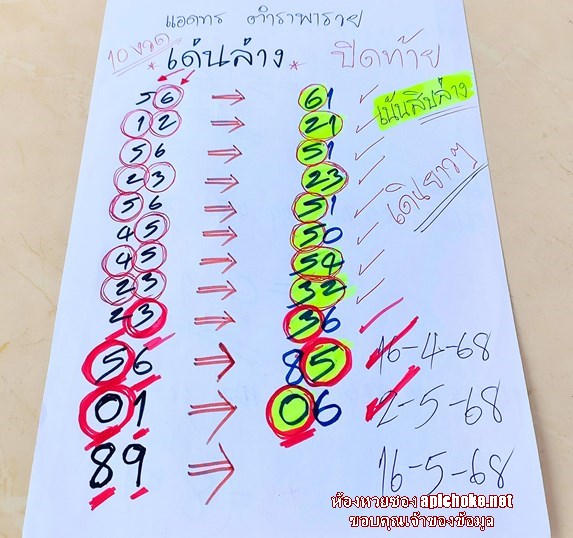 แอดทร ตำราพารวย
10งวด
*เด่นล่าง* ปิดท้าย
56 → 61 ✓
เน้นสิบล่าง
12 → 21 ✓
56 → 51 ✓
เดินยาวๆ
23 → 23 ✓
56 → 51 ✓
45 → 50 ✓
45 → 54 ✓
23 → 32 ✓
23 → 36 ✓
56 → 85 ✓ 16-4-68
01 → 06 ✓ 2-5-68
89 → 16-5-68
ห้องหวยซอง apichoke.net
ขอบคุณเจ้าของข้อมูล